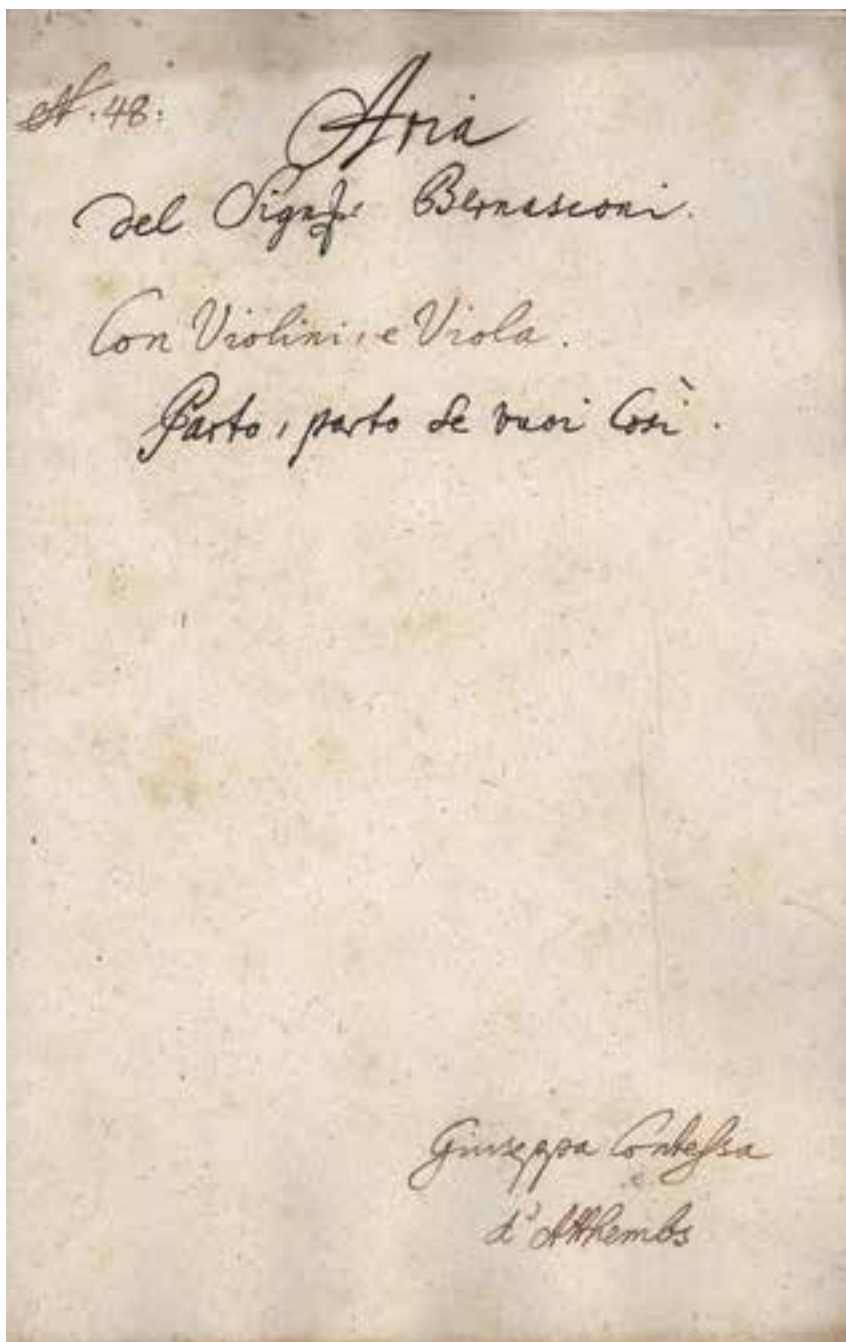 N. 48:
Aria
del Sig.re Bernasconi.
Con Violini, e Viola.
Parto, parto se vuoi Così.
Giuseppa Contessa
d'Atthembs